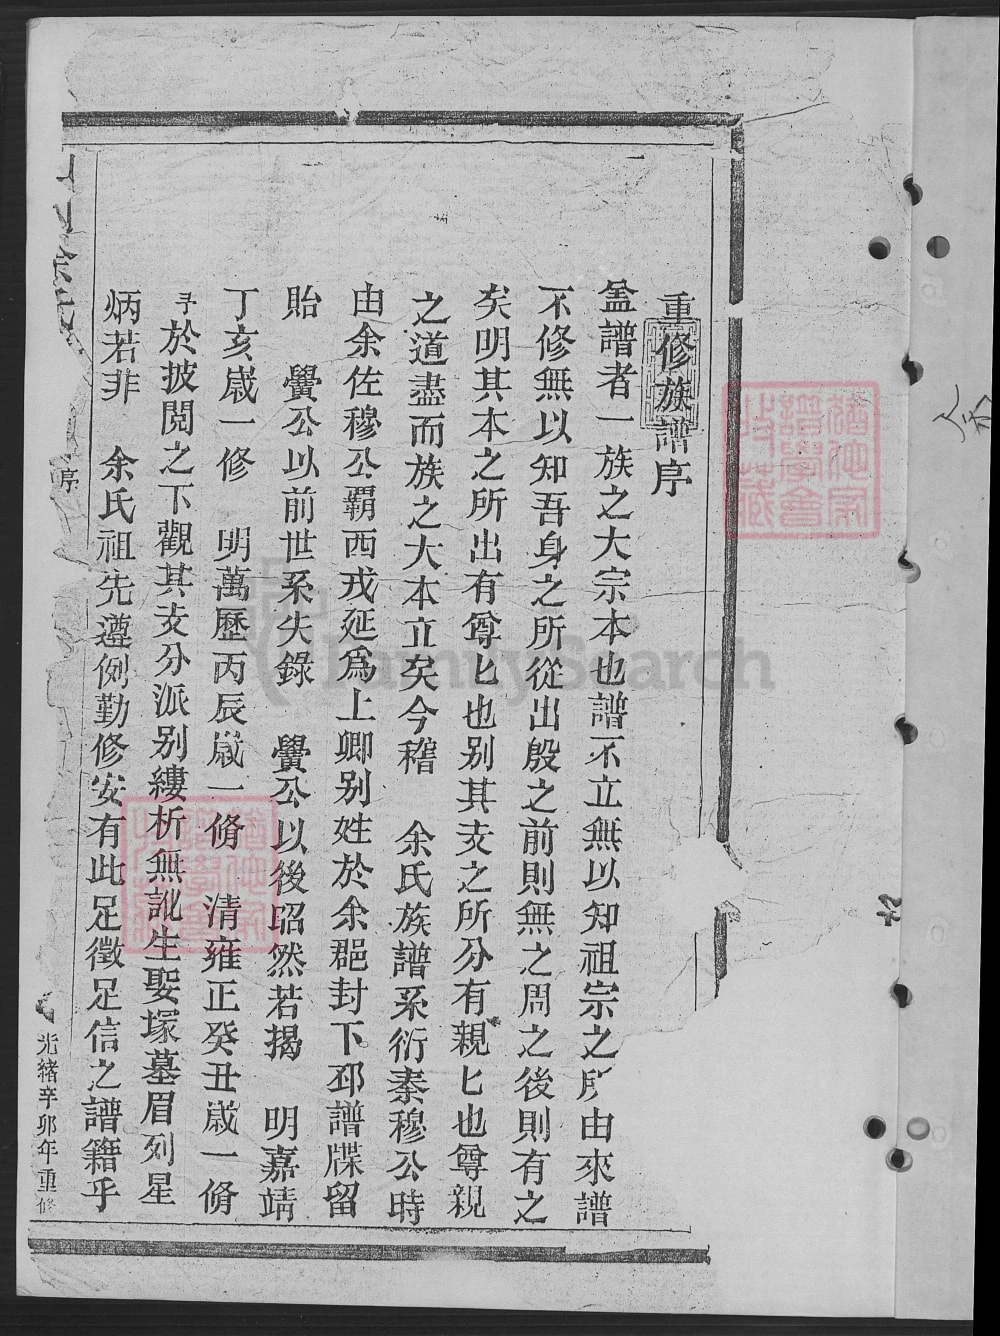 重修族譜序
盖譜者一族之大宗本也譜不立無以知祖宗之所由來譜
不修無以知吾身之所從出殷之前則無之周之後則有之
矣明其本之所出有尊匕也别其支之所分有親匕也尊親
之道盡而族之大本立矣今稽 余氏族譜系衍秦穆公時
由余佐穆公霸西戎延為上卿别姓於余郡封下邳譜牒留
貽 黌公以前世系失錄 黌公以後昭然若揭 明嘉靖
丁亥歲一修 明萬歷丙辰歲一脩 清雍正癸丑歲一脩
予於披閱之下觀其支分派别縷析無訛生娶塚墓眉列星
炳若非 余氏祖先遵例勤修安有此足徵足信之譜籍乎
余氏
序
光緒辛卯年重修
譜學會
收藏
譜學會
收藏
FamilySearch